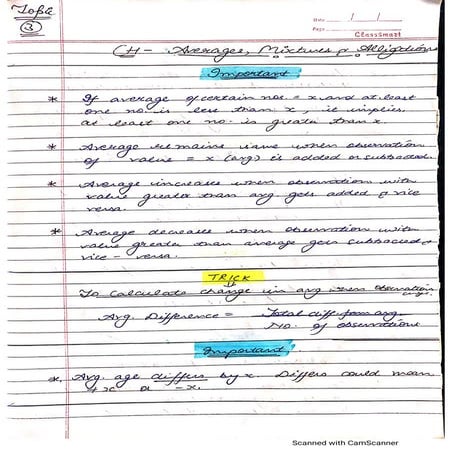 Topic
3
Date / /
Page
Classmart
CH- Averages, Mixtures & Alligations
Important
* If average of certain nos. = x and at least
one no. is less than x, it implies
at least one no. is greater than x.
* Average remains same when observation
of value = x (avg) is added or subtracted.
* Average increases when observation with
value greater than avg gets added & vice
versa.
* Average decreases when observation with
value greater than average gets subtracted &
vice - versa.
TRICK
To calculate change in avg when observation
Avg. Difference = Total diff from avg.
No. of observations
Important
*. Avg. age differs by x. Differs could mean
+x or -x.
Scanned with CamScanner